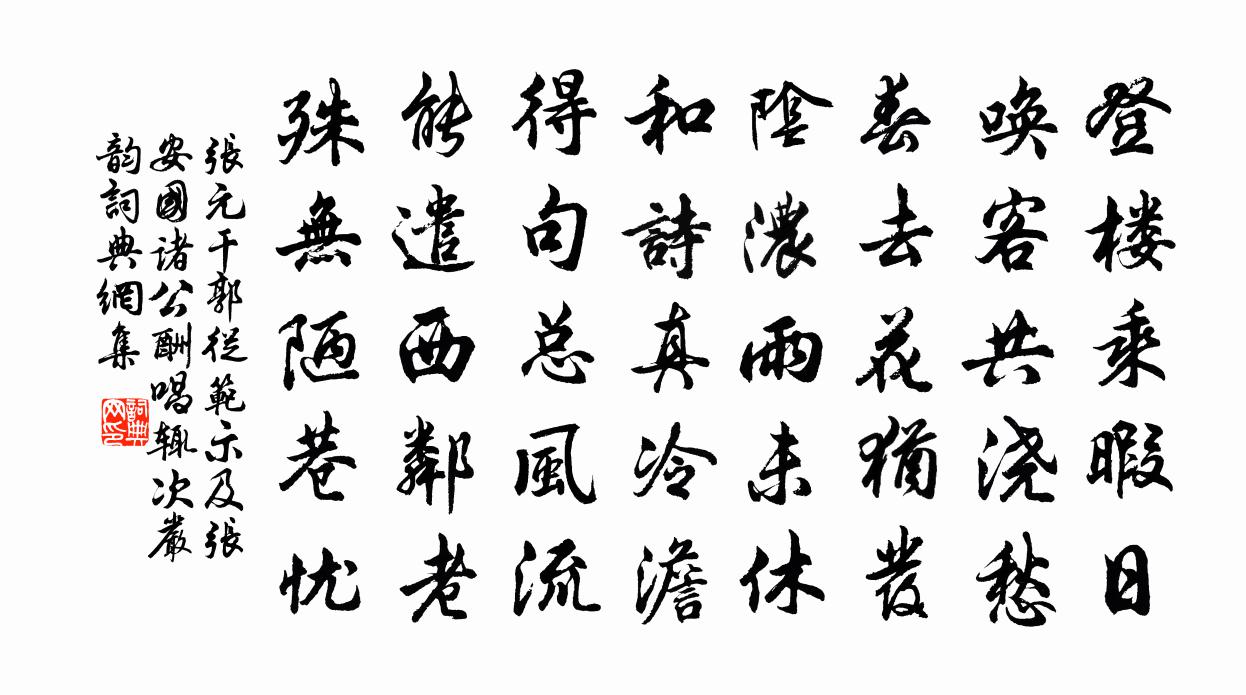 登楼乘暇日
唤客共浇愁
春去花犹發
陰濃雨未休
和詩真冷澹
得句总風流
能遣西鄰老
殊無陋巷忧
張元干郭從範示及張
安國諸公酬唱辄次嚴
韵詞典網集
詞典
网印